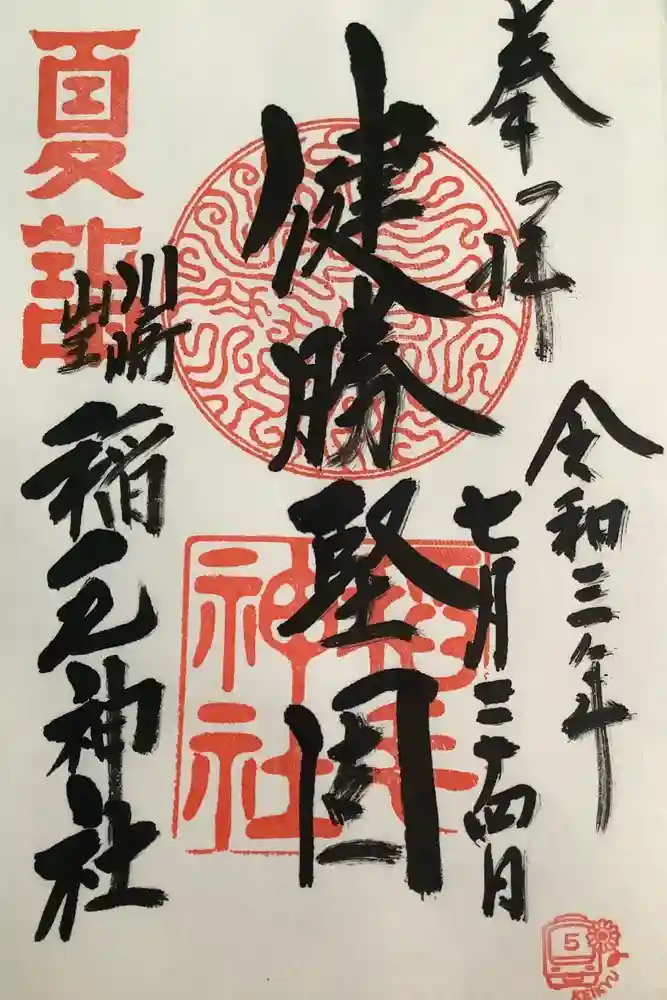 奉拝
令和三年
七月二十四日
健勝堅固
稲毛
神社
夏詣
川崎
山王
稲毛神社
5